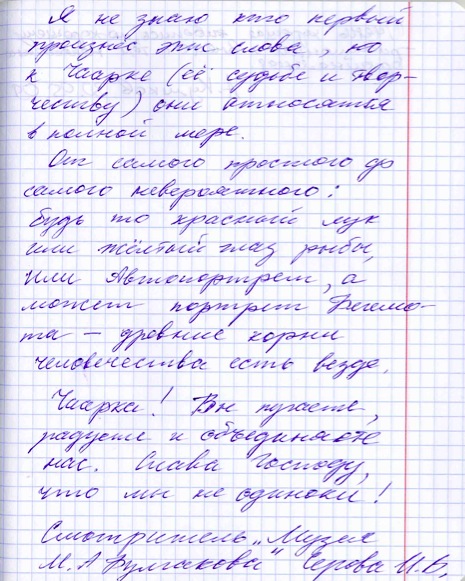 Я не знаю кто первый
произнёс эти слова, но
к Чаарке (её судьбе и твор-
честву) они относятся
в полной мере.
От самого простого до
самого невероятного:
будь то красный лук
или жёлтый глаз рыбы,
или Автопортрет, а
может портрет Бегемо-
та – древние корни
человечества есть везде.
Чаарка! Вы пугаете,
радуете и объединяете
нас. Слава Господу,
что мы не одиноки!
Смотритель „Музея
М.А Булгакова" Серова И.Б.